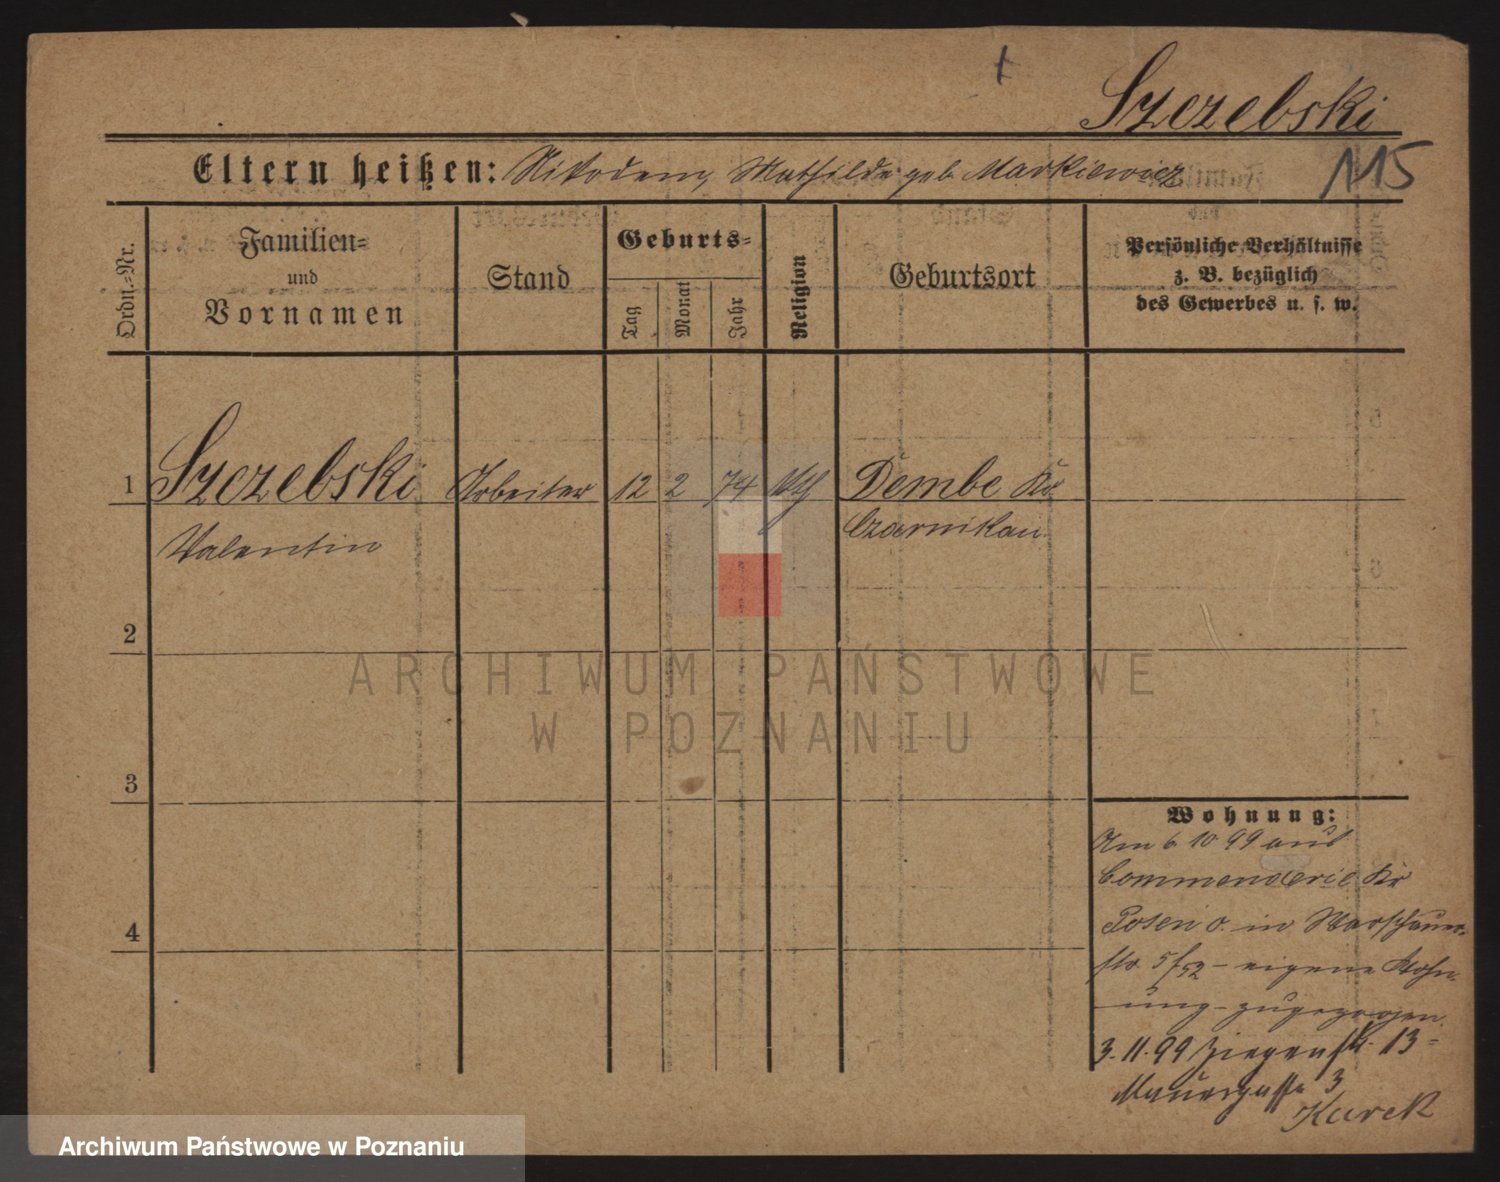 Szczebski
Eltern heißen: Nikodem, Mathilde geb Markiewicz
115
Ordn.-Nr.
Familien-
und
Vornamen
Stand
Geburts-
Tag
Monat
Jahr
Religion
Geburtsort
Persönliche Verhältnisse
z. B. bezüglich
des Gewerbes u. s. w.
1 Szczebski Arbeiter 12 2 74 Dembe Kr
Valentin Czarnikau
2
ARCHIWUM PAŃSTWOWE
W POZNANIU
3
Wohnung:
Am 6 10 99 aus
Commenderie Kr
4
Posen o. in Warschauer-
str 5/52 - eigene Wohn-
ung zugezogen
3.11.99 Ziegenstr. 13-
Mauergasse 3
Kurek
Archiwum Państwowe w Poznaniu